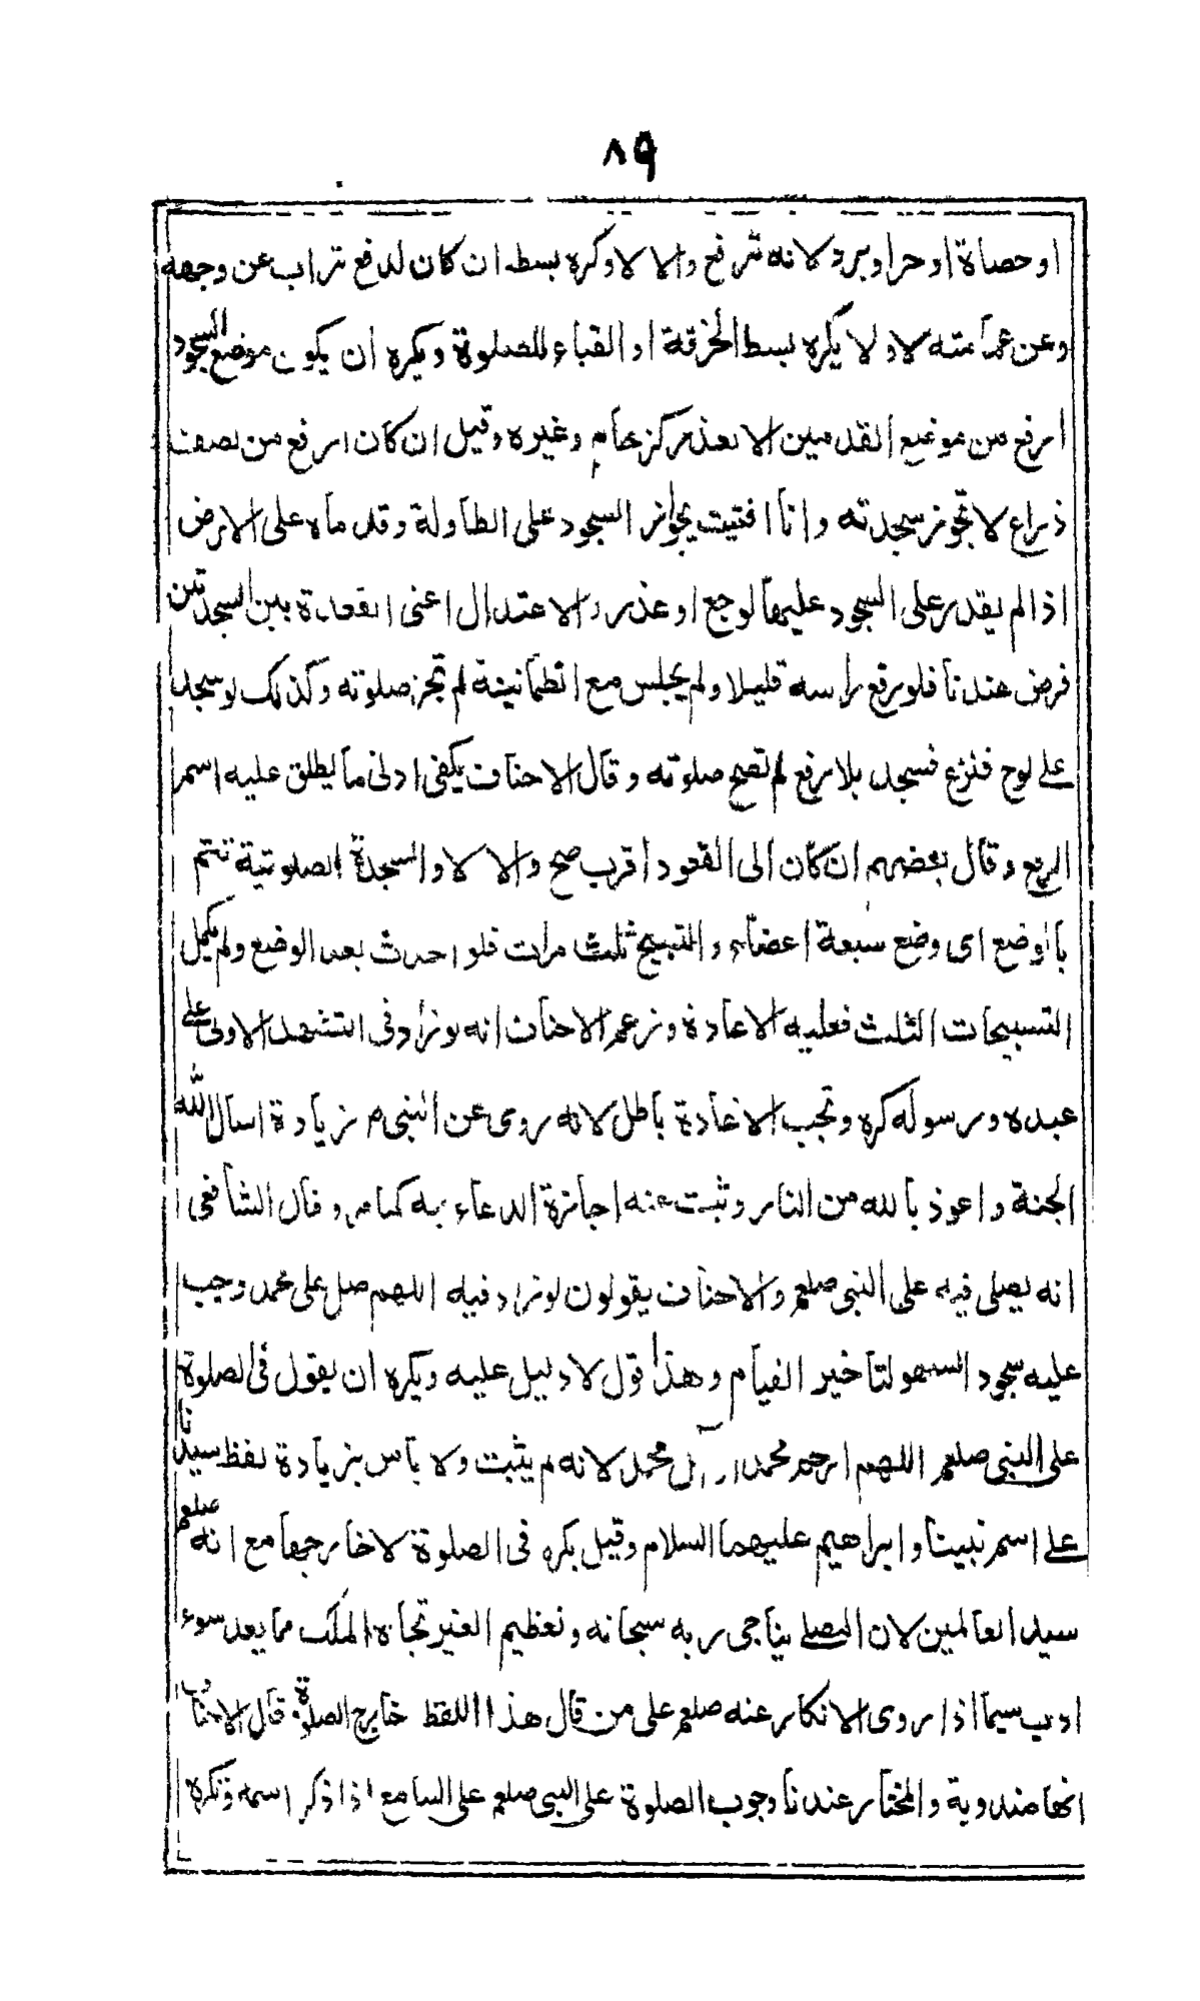 ٨٩
او حصاة او حر او برد لانه ترفع والا لا وكره بسطه ان كان لدفع تراب عن وجهه
وعن عمامته لا ولا يكره بسط الخرقة او القباء للصلوة ويكره ان يكون موضع السجود
ارفع من موضع القدمين الا بعذر كزحام وغيره وقيل ان كان ارفع من نصف
ذراع لا تجوز سجدته وانا افتيت بجواز السجود على الطاولة وقدماه على الارض
اذا لم يقدر على السجود عليها لوجع او عذر والاعتدال اعنى القعدة بين السجدتين
فرض عندنا فلو رفع رأسه قليلا ولم يجلس مع الطمانينة لم تجز صلوته وكذلك لو سجد
على لوح فنزع فسجد بلا رفع لم تصح صلوته وقال الاحناف يكفى ادنى ما يطلق عليه اسم
الرفع وقال بعضهم ان كان الى القعود اقرب صح والا لا والسجدة الصلوتية تتم
بالوضع اى وضع سبعة اعضاء والتسبيح ثلث مرات فلو احدث بعد الوضع ولم يكمل
التسبيحات الثلث فعليه الاعادة وزعم الاحناف انه لو زاد فى التشهد الاولى على
عبده ورسوله كره وتجب الاعادة باطل لانه روى عن النبى م زيادة اسأل الله
الجنة واعوذ بالله من النار وثبت عنه اجازة الدعاء به كما مر وقال الشافعى
انه يصلى فيه على النبى صلعم والاحناف يقولون لو زاد فيه اللهم صل على محمد وجب
عليه سجود السهو لتاخير القيام وهذا قول لا دليل عليه ويكره ان يقول فى الصلوة
على النبى صلعم اللهم ارحم محمدا وآل محمد لانه لم يثبت ولا بأس بزيادة لفظ سيدنا
على اسم نبينا وابراهيم عليهما السلام وقيل يكره فى الصلوة لا خارجها مع انه صلعم
سيد العالمين لان المصلى يناجى ربه سبحانه وتعظيم الغير تجاه الملك مما يعد سوء
ادب سيما اذا روى الانكار عنه صلعم على من قال هذا اللفظ خارج الصلوة قال الاحناف
انها مندوبة والمختار عندنا وجوب الصلوة على النبى صلعم على السامع اذا ذكر اسمه وتكره